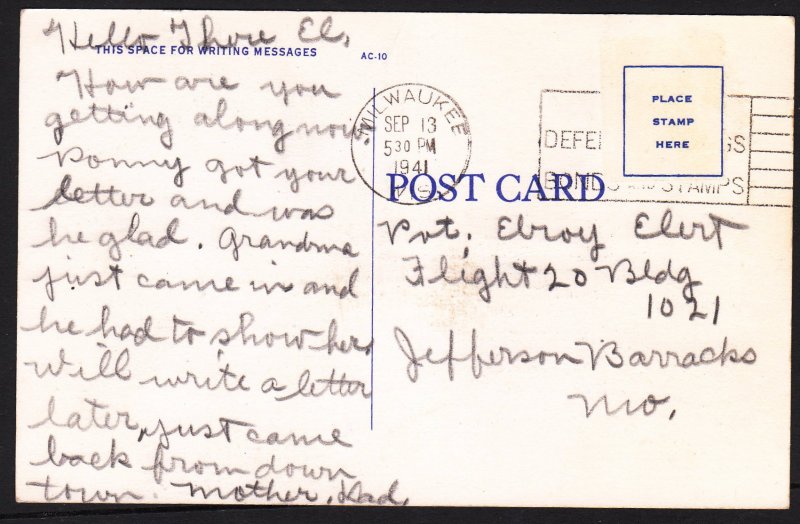 Hello There El.
THIS SPACE FOR WRITING MESSAGES
AC-10
How are you
getting along now.
Ronny got your
letter and was
he glad. Grandma
just came in and
he had to show her.
Will write a letter
later, just came
back from down
town. Mother, Dad.
MILWAUKEE
SEP 13
5 30 PM
1941
WIS.
PLACE
STAMP
HERE
POST CARD
Pvt. Elroy Elert
Flight 20 Bldg
1021
Jefferson Barracks
Mo.
BONDS
STAMPS